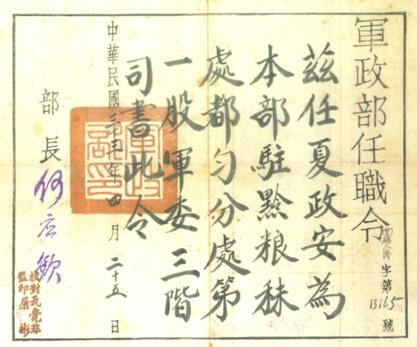 軍政部任職令
字第13165號
茲任夏政安為
本部駐黔粮秣
處都匀分處第
一股軍委三階
司書此令
部長何应欽
中華民國三十三年四月二十五日
監印屠彬